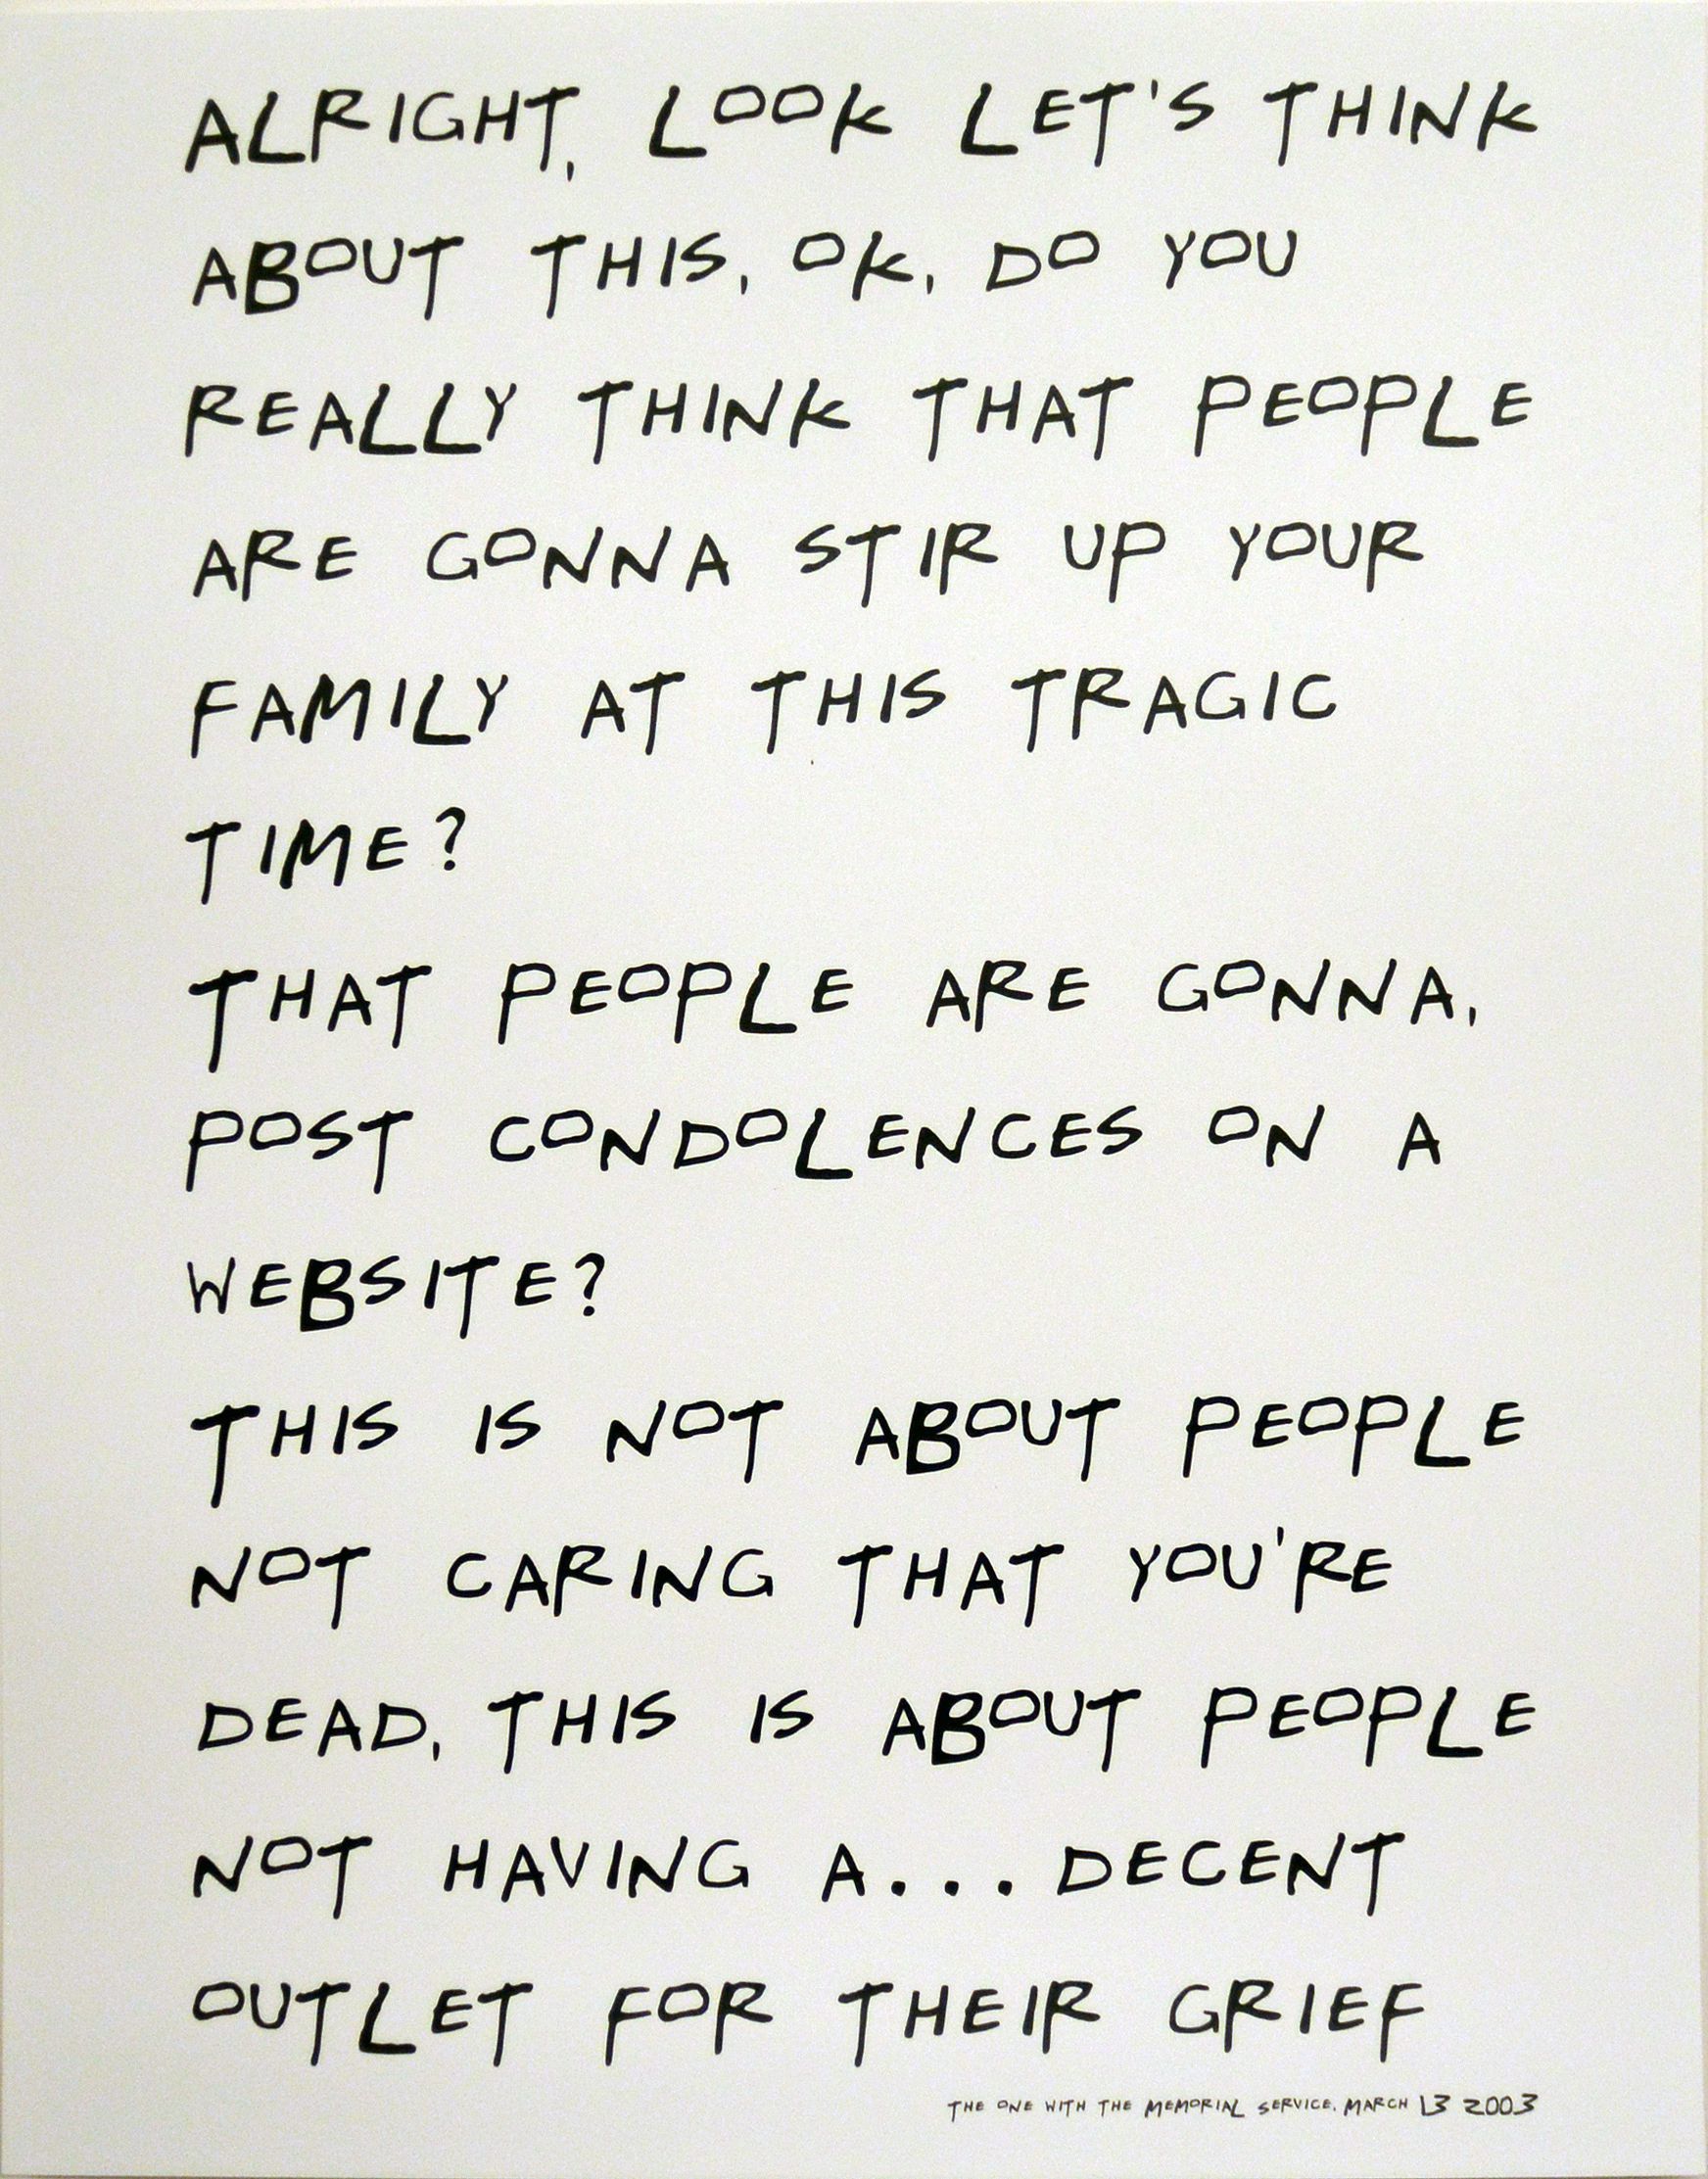 ALRIGHT, LOOK LET'S THINK
ABOUT THIS, OK, DO YOU
REALLY THINK THAT PEOPLE
ARE GONNA STIR UP YOUR
FAMILY AT THIS TRAGIC
TIME?
THAT PEOPLE ARE GONNA,
POST CONDOLENCES ON A
WEBSITE?
THIS IS NOT ABOUT PEOPLE
NOT CARING THAT YOU'RE
DEAD, THIS IS ABOUT PEOPLE
NOT HAVING A... DECENT
OUTLET FOR THEIR GRIEF
THE ONE WITH THE MEMORIAL SERVICE, MARCH 13 2003